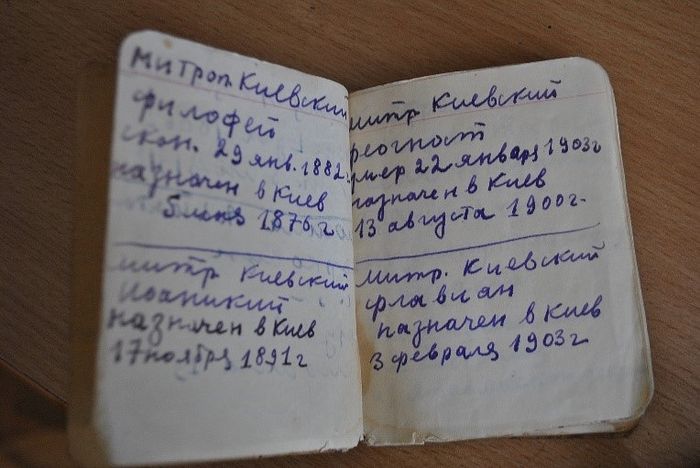 Митроп Киевский
Филофей
скон. 29 янв. 1882
назначен в Киев
5 июня 1876 г
митр Киевский
Иоаникий
назначен в Киев
17 ноября 1891 г
митр Киевский
Феогност
умер 22 января 1903 г
назначен в Киев
13 августа 1900 г.
Митр. Киевский
Флавиан
назначен в Киев
3 февраля 1903 г